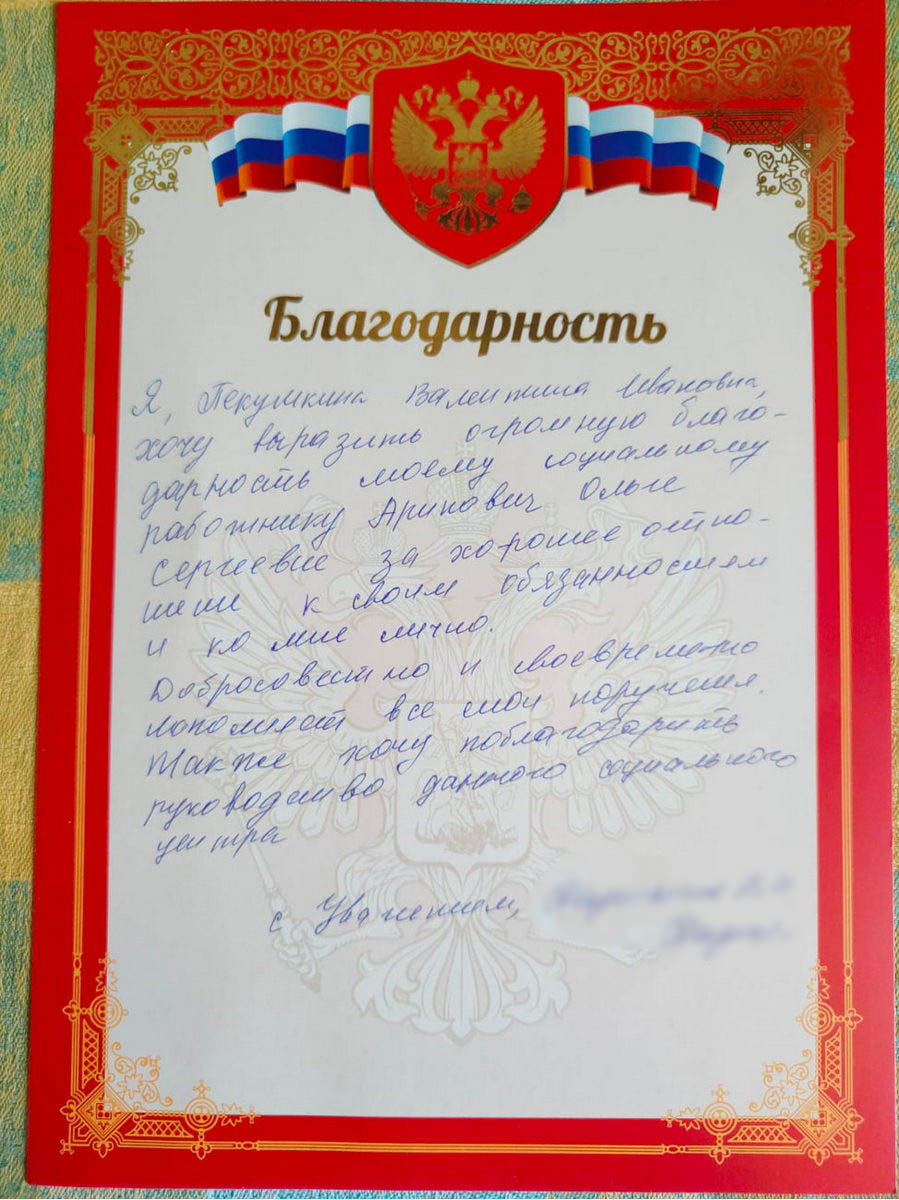 Благодарность
Я, Пекумкина Валентина Ивановна,
хочу выразить огромную благо-
дарность моему социальному
работнику Арипович Ольге
Сергеевне за хорошее отно-
шени к своим обязанностям
и ко мне лично.
Добросовестно и своевременно
исполняет все мои поручения.
Также хочу поблагодарить
руководство данного социального
центра
с Уважением,